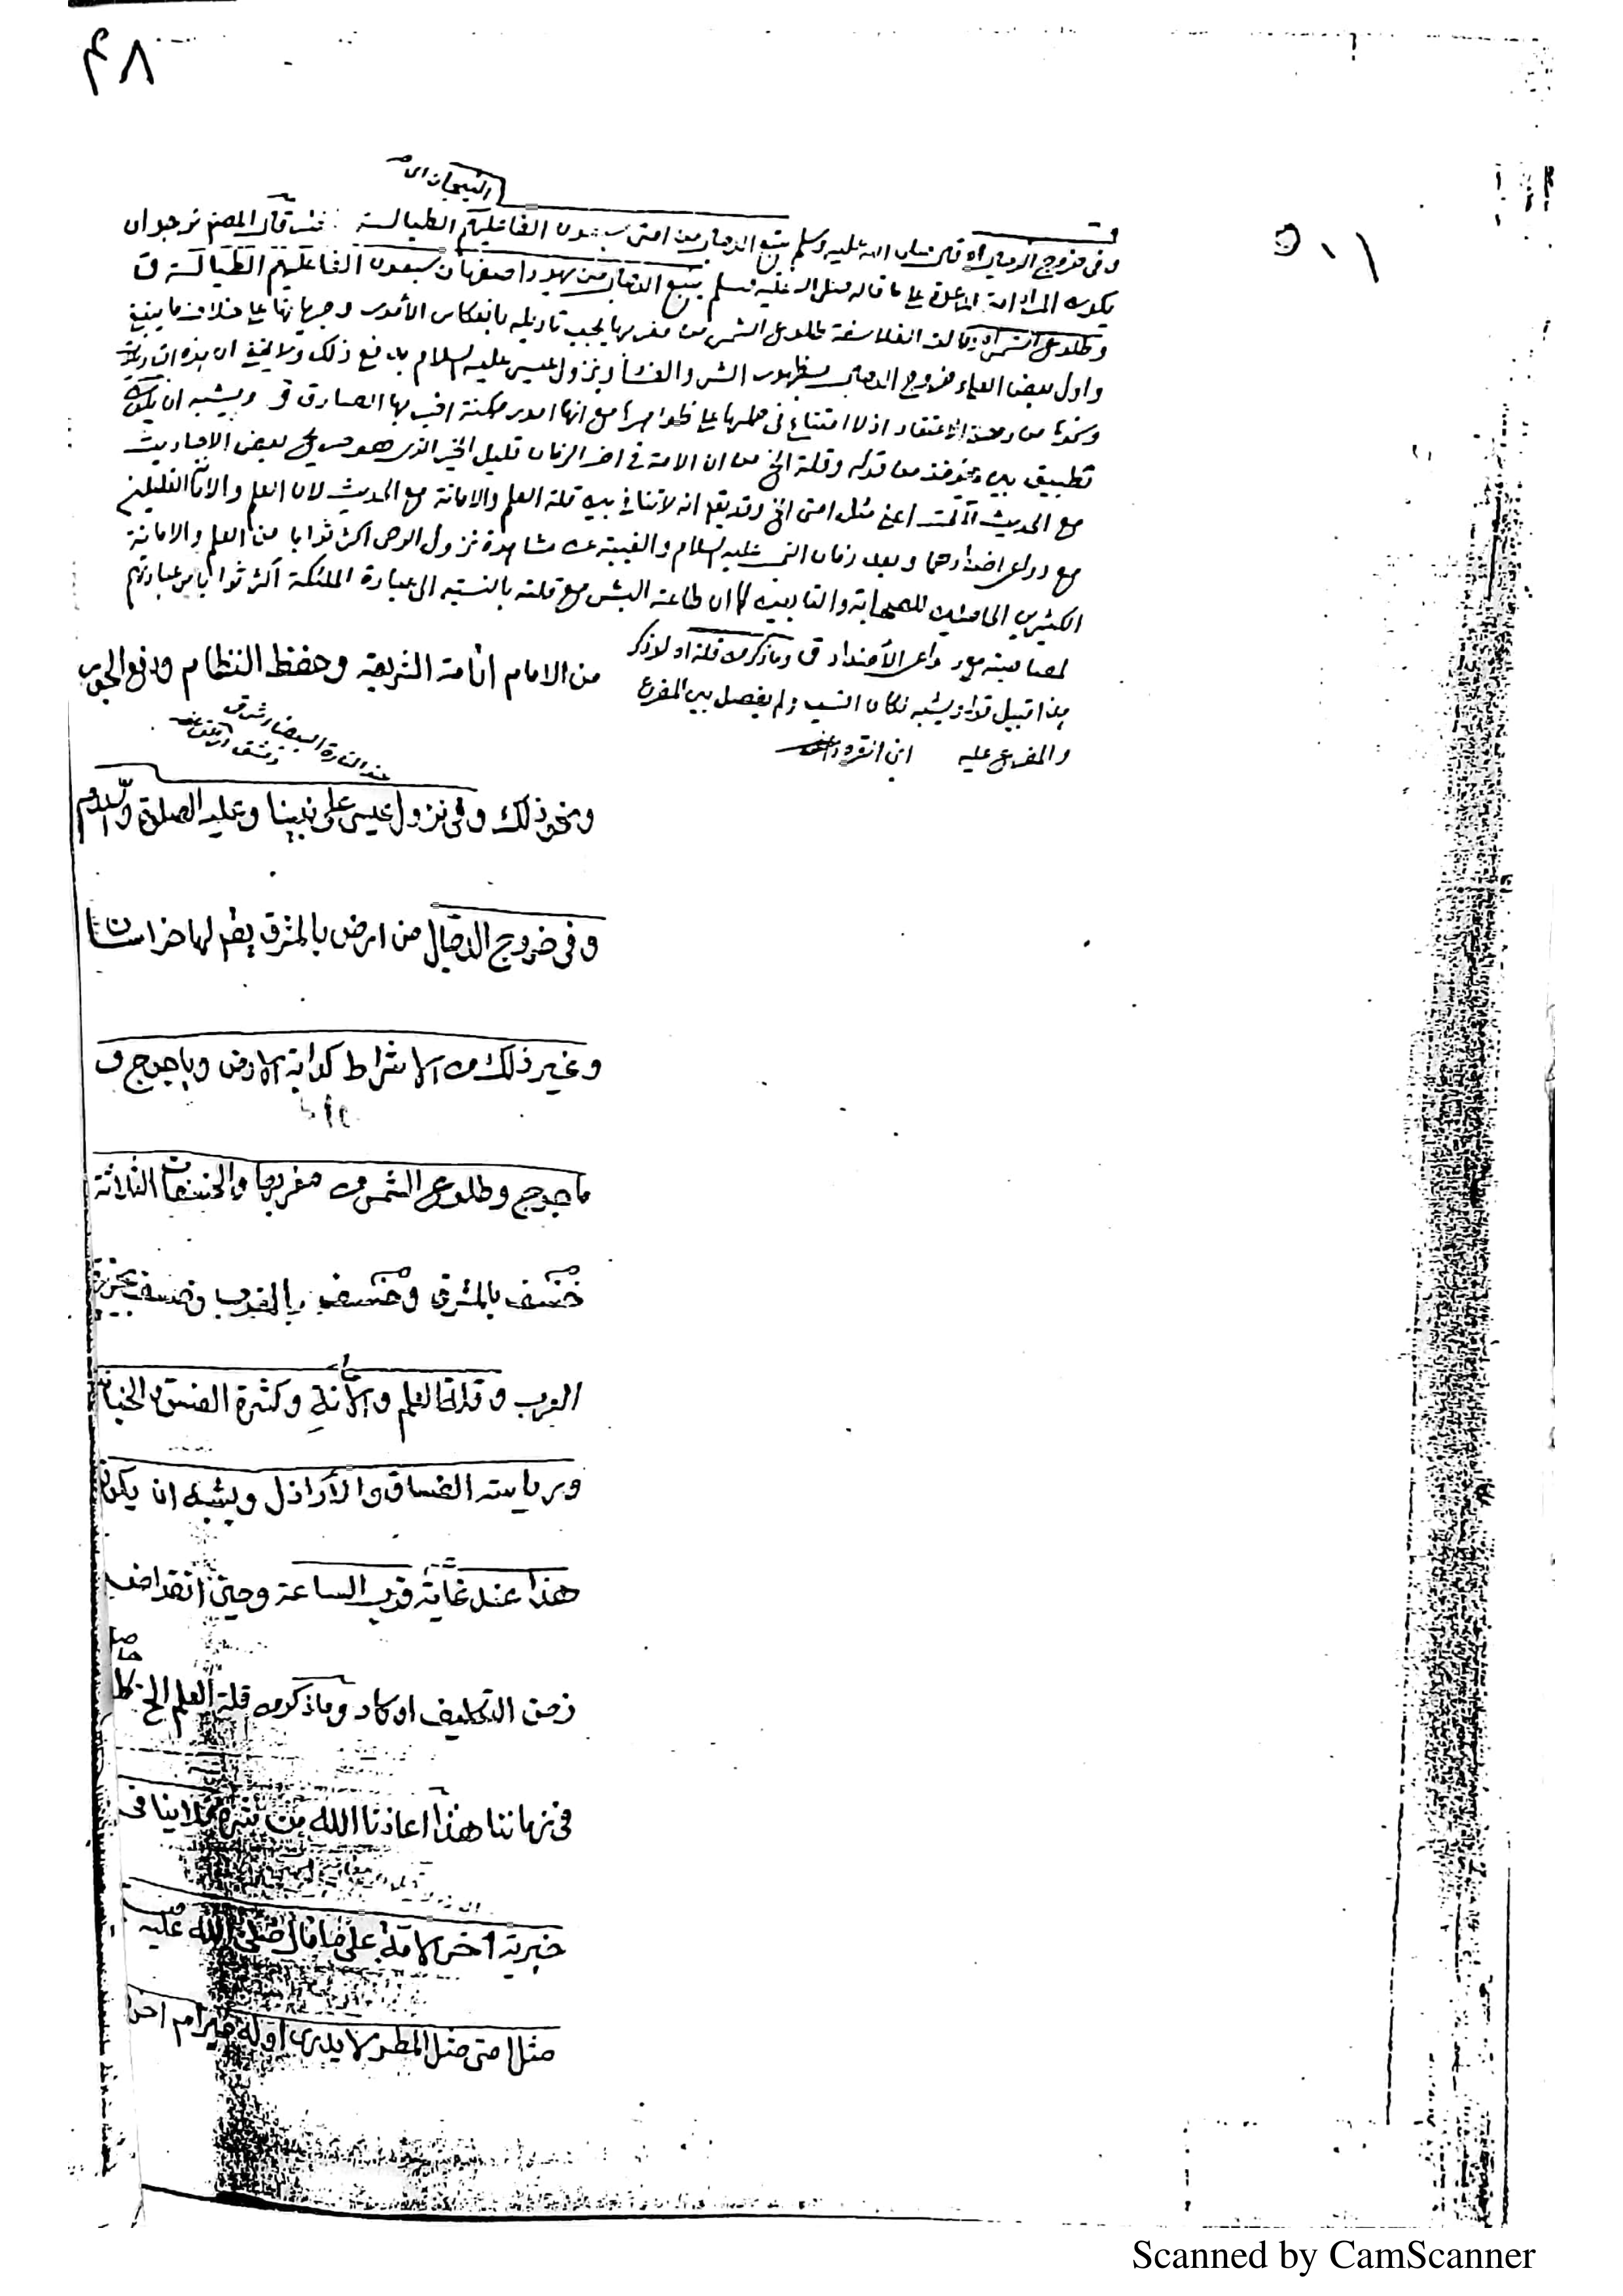 ٤٨
٥١١
التيجان اى
وفى خروج الدجال اه قال صلى الله عليه وسلم يتبع الدجال من امتى سبعون الفا عليهم الطيالسة قال المص نرجو ان
يكون المراد امة على ما قاله صلى الله عليه وسلم يتبع الدجال من يهود اصفهان سبعون الفا عليهم الطيالسة ق
وطلوع الشمس اه قالت الفلاسفة طلوع الشمس من مغربها يجب تاويله بانعكاس الأمور وجريانها على خلاف ما ينبغى
واول بعض العلماء خروج الدجال بظهور الشر والفساد ونزول عيسى عليه السلام بدفع ذلك ولا يخفى ان هذه
اذ لا امتناع فى حملها على ظواهرها مع انها امور ممكنة اخبر بها الصادق ق ويشبه ان يكون
تطبيق بين من قوله وقلة الخ من ان الامة فى اخر الزمان قليل الخير الذى هو بعض الاحاديث
مع الحديث اعنى مثل امتى الخ وقد يقع انه لا تنافى بين قلة العلم والامانة مع الحديث لان العلم والامانة القليلين
مع دواعى اضدادهما وبعد زمان النبى عليه السلام والغيبة عن مشاهدة نزول الوحى اكثر ثوابا من العلم والامانة
الكثيرين الحاصلين للصحابة والتابعين كما ان طاعة البشر مع قلته بالنسبة الى عبادة الملئكة اكثر ثوابا من عبادتهم
دواعى الأضداد ق وما ذكر من قلة اه لو ذكر
هذا قبيل قوله ويشبه لكان انسب ولم يفصل بين المفرع
والمفرع عليه
من الامام اقامة الشريعة وحفظ النظام ودفع الجور
عند المنارة البيضاء شرقى
دمشق
ونحو ذلك وفى نزول عيسى على نبينا وعليه الصلوة والسلام
وفى خروج الدجال من ارض بالمشرق يقم لها خراسان
وغير ذلك من الاشراط كدابة الارض وياجوج و
ماجوج وطلوع الشمس من مغربها والخسفات الثلاثة
خسف بالمشرق وخسف بالمغرب وخسف بجزيرة
العرب وقلة العلم والامانة وكثرة الفسق والخيانة
ورياسة الفساق والأراذل ويشبه ان يكون
هذا عند غاية قرب الساعة وحين انقراض
حاصل
زمن التكليف او كاد وما ذكر من قلة العلم الخ
فى زماننا هذا اعاذنا الله من شره فلا ينافى
خيرية اخر الامة على ما قال صلى الله عليه
مثل امتى مثل المطر لا يدرى اوله خير ام اخره
Scanned by CamScanner